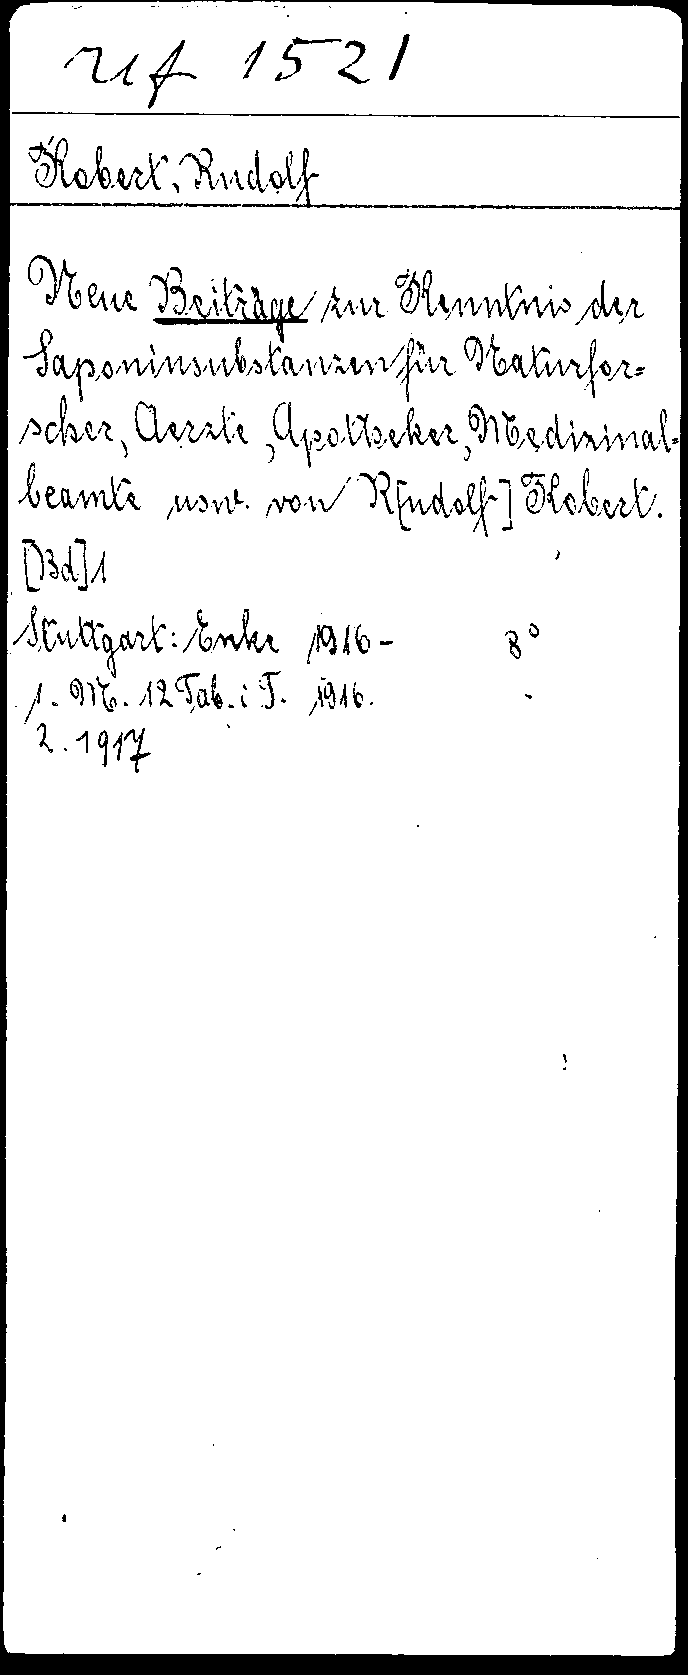 uf 1521
Kobert, Rudolf
Neue Beiträge zur Kenntnis der
Saponinsubstanzen für Naturfor=
scher, Aerzte, Apotheker, Medizinal=
beamte usw. von R[udolf] Kobert.
[Bd] 1
Stuttgart: Enke 1916 – 8°
1. M. 12 Tab. i. T. 1916.
2. 1917